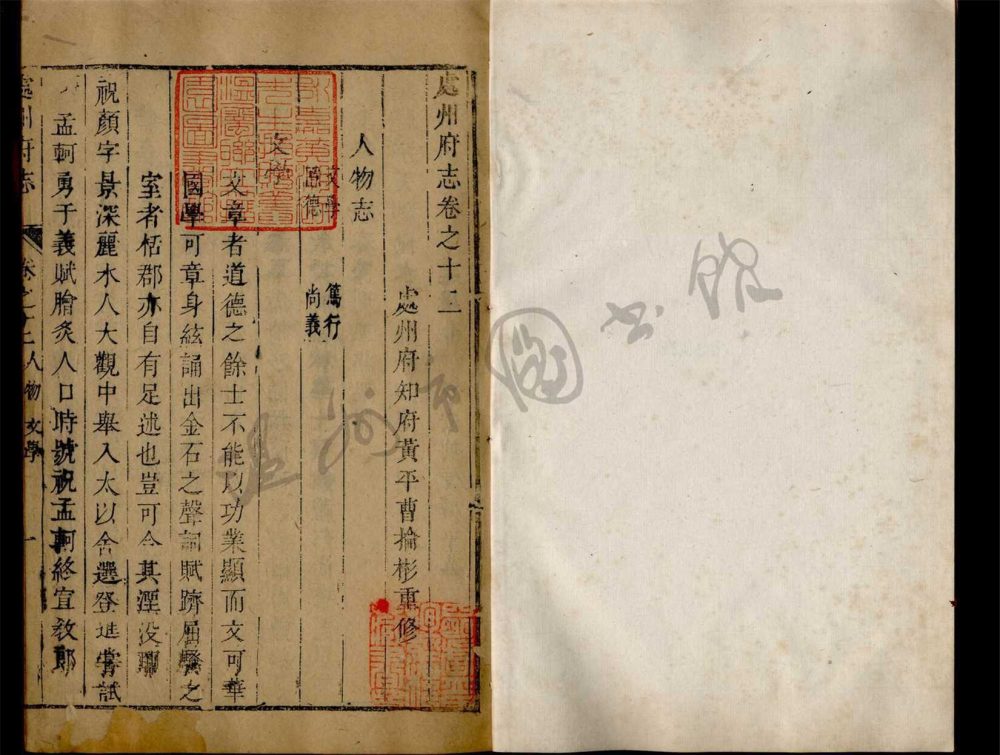 處州府志卷之十二
處州府知府黃平曹掄彬重修
人物志
文學 篤行
隱德 尚義
文學
文章者道德之餘士不能以功業顯而文可華
國學可章身絃誦出金石之聲詞賦躋屈
之
室者栝郡亦自有足述也豈可令其湮没
祝顏字景深麗水人大觀中舉入太以舍選登進嘗試
孟軻勇于義賦膾炙人口時號祝孟軻終宣教郎
處州府志 卷之十二人物 文學 一
溫州市圖書館